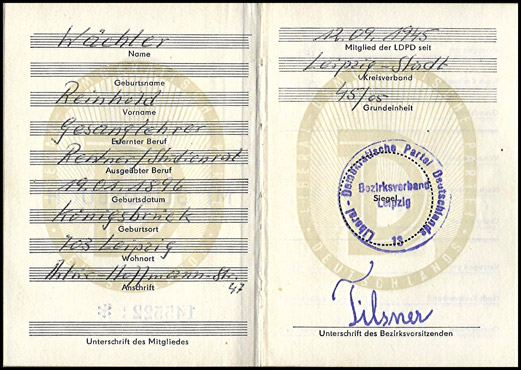 Wächler
Name
Geburtsname
Reinhold
Vorname
Gesanglehrer
Erlernter Beruf
Rentner/Studienrat
Ausgeübter Beruf
19.01.1896
Geburtsdatum
Königsbrück
Geburtsort
703 Leipzig
Wohnort
Hoffmann-Str.
47
Anschrift
Unterschrift des Mitgliedes
12.09.1945
Mitglied der LDPD seit
Leipzig-Stadt
Kreisverband
45/05
Grundeinheit
Liberal-Demokratische Partei Deutschlands
Bezirksverband
Leipzig
Siegel
13
Tilsner
Unterschrift des Bezirksvorsitzenden